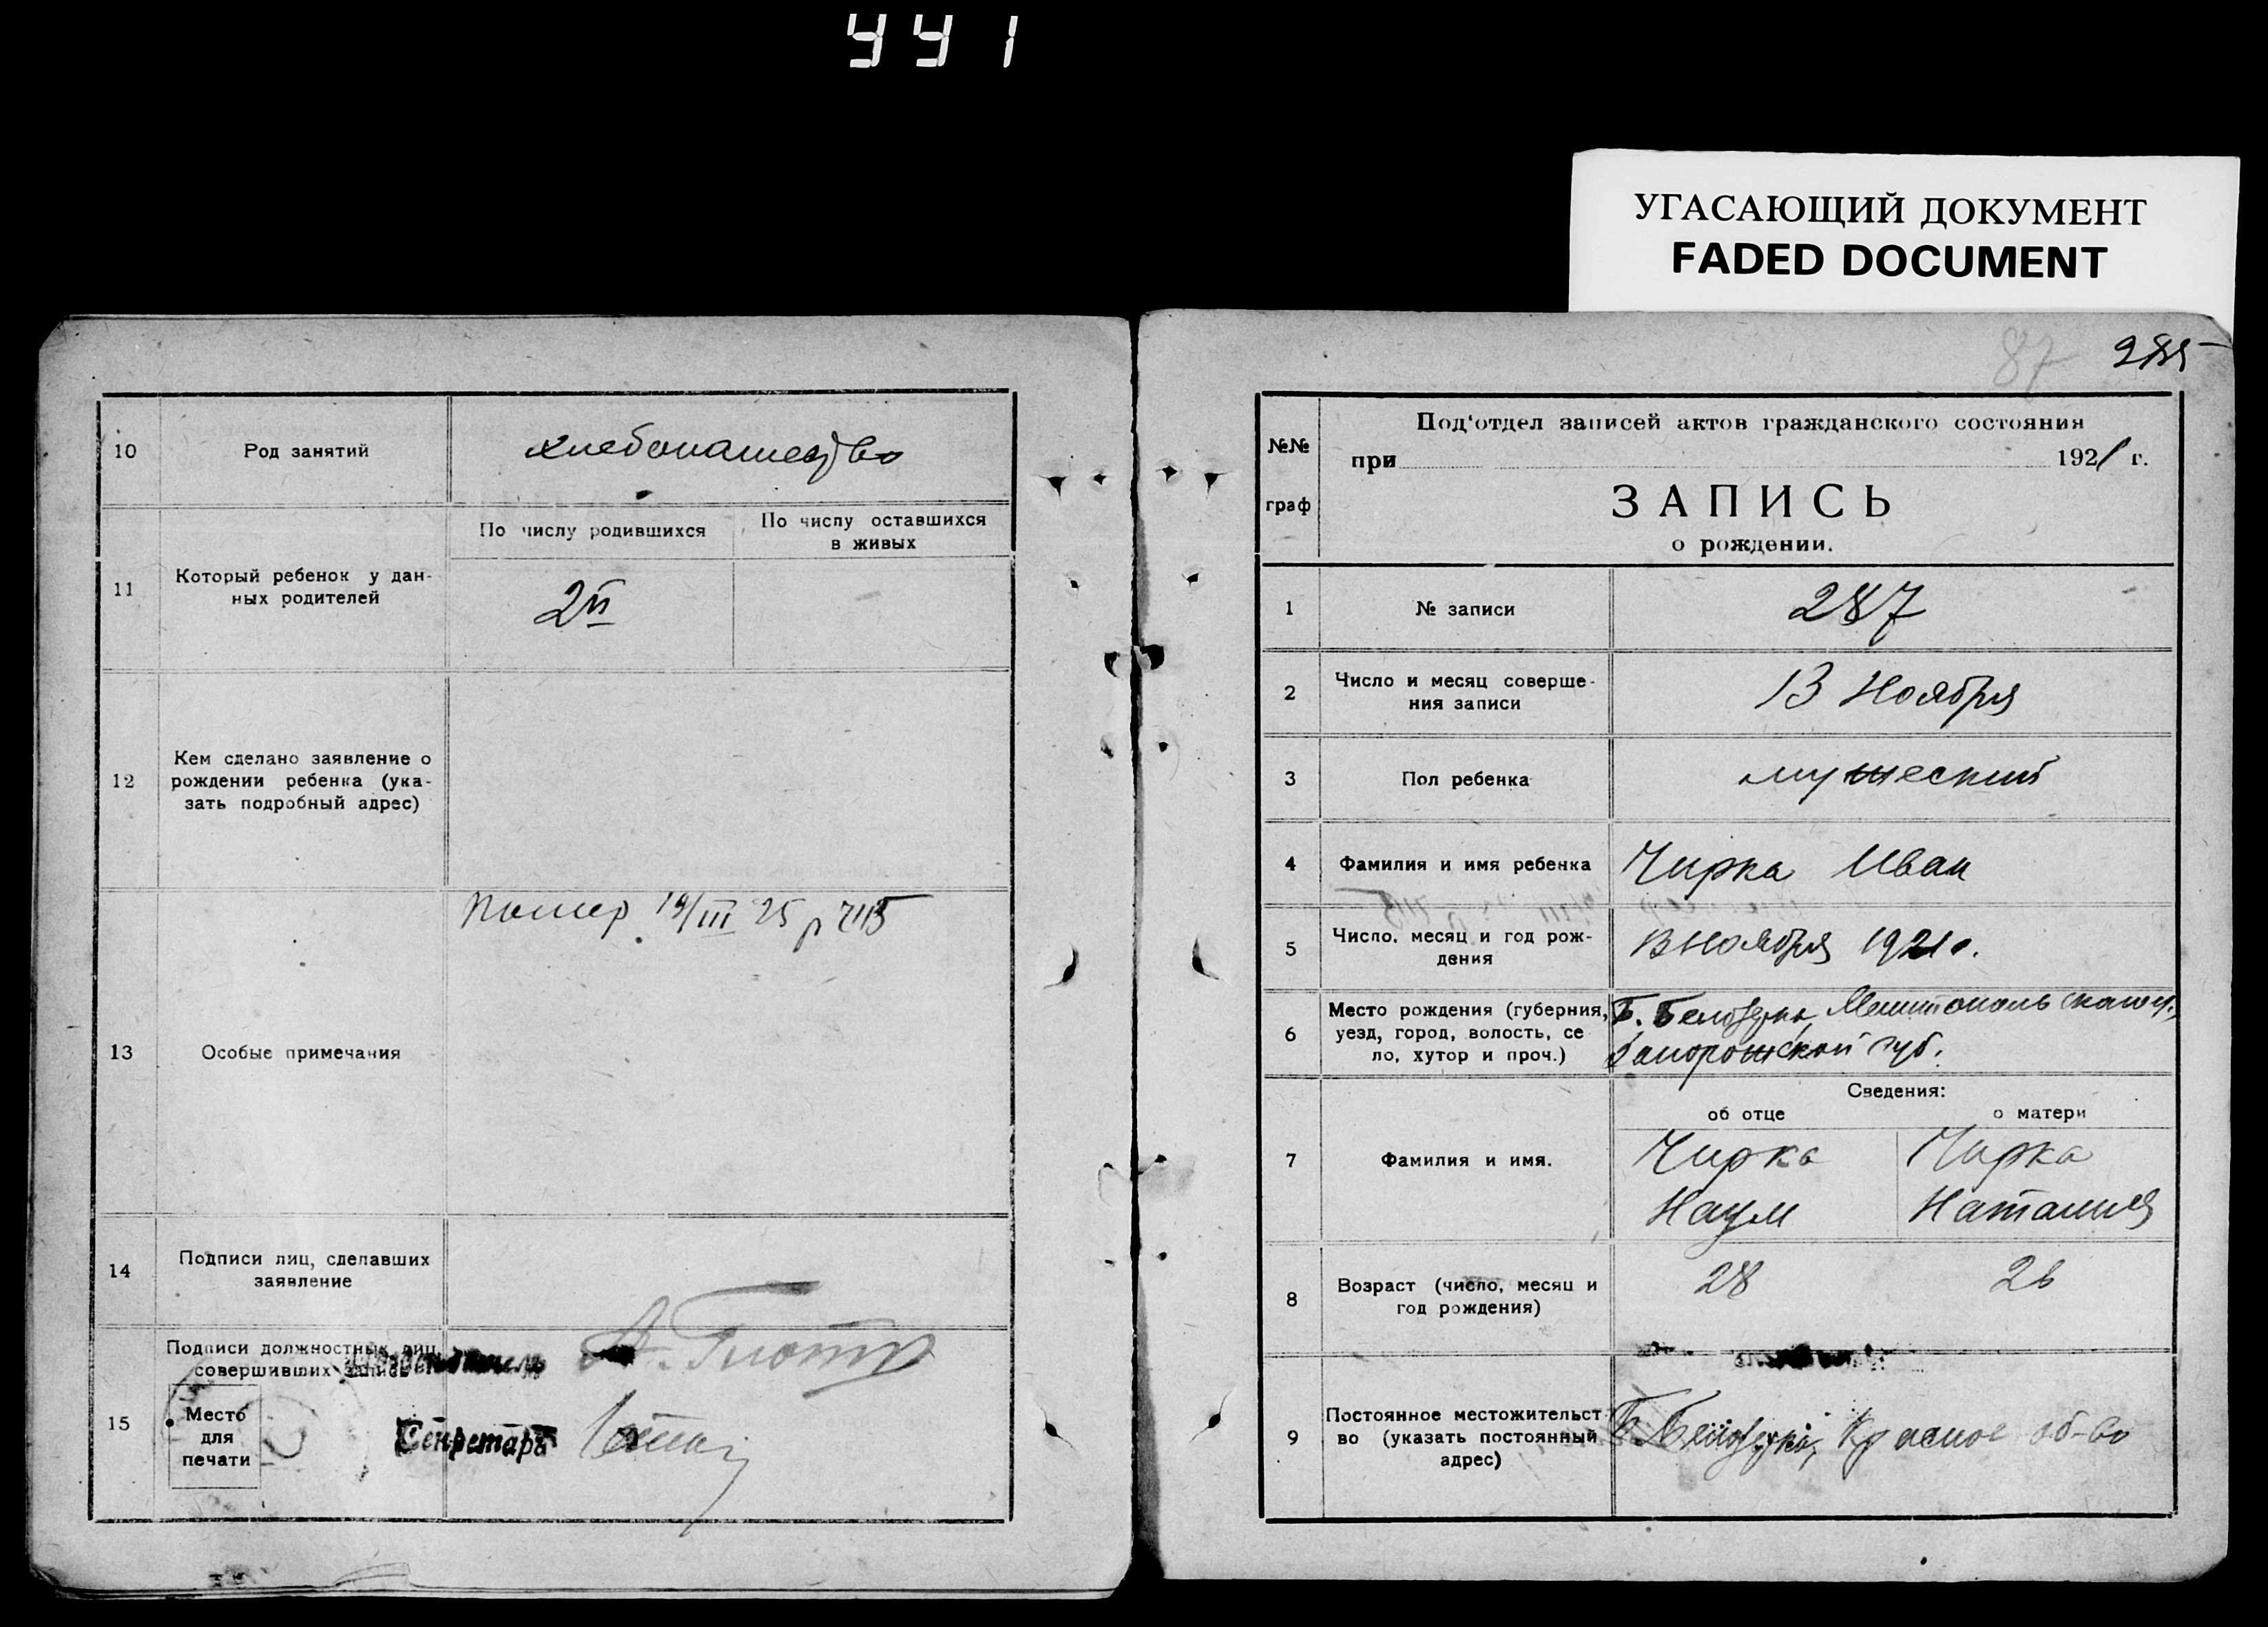 441
УГАСАЮЩИЙ ДОКУМЕНТ
FADED DOCUMENT
10
Род занятий
хлебопашество
11
Который ребенок у дан-
ных родителей
По числу родившихся
По числу оставшихся
в живых
2й
12
Кем сделано заявление о
рождении ребенка (ука-
зать подробный адрес)
13
Особые примечания
Помер 19/III 25 р
14
Подписи лиц, сделавших
заявление
15
Подписи должностных лиц,
совершивших запись
Место
для
печати
Секретарь
87 285
№№
граф
Под‘отдел записей актов гражданского состояния
при 1921 г.
ЗАПИСЬ
о рождении.
1
№ записи
287
2
Число и месяц соверше-
ния записи
13 Ноября
3
Пол ребенка
мужеский
4
Фамилия и имя ребенка
Чирка Иван
5
Число, месяц и год рож-
дения
Ноября 1921 г.
6
Место рождения (губерния,
уезд, город, волость, се
ло, хутор и проч.)
Б. Белозерка
Запорожской губ.
Сведения:
об отце
о матери
7
Фамилия и имя.
Чирка
Наум
Чирка
Наталия
8
Возраст (число, месяц и
год рождения)
28
26
9
Постоянное местожительст
во (указать постоянный
адрес)
Б. Белозерка, Красное об-во